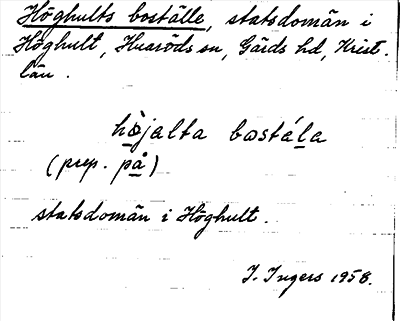 Höghults boställe, statsdomän i
Höghult, Huaröds sn, Gärds hd, Krist.
län.
hòjalta bostála
(prep. på)
statsdomän i Höghult.
I. Ingers 1958.